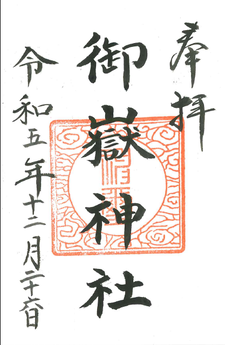 奉拝
御嶽神社
令和五年十二月二十六日